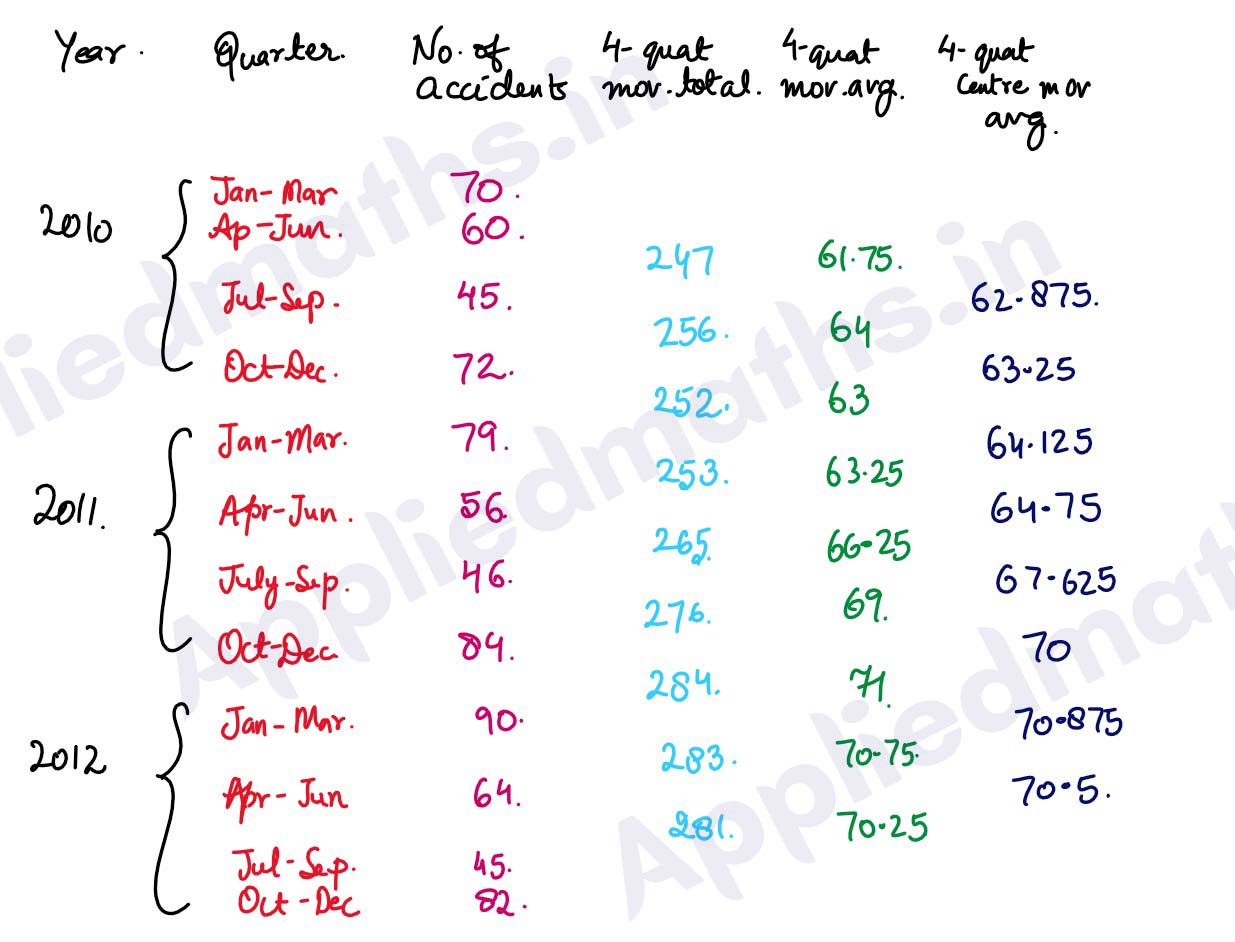 Year. Quarter. No. of accidents 4-quat mov. total. 4-quat mov. avg. 4-quat Centre mov avg.
2010 Jan-Mar 70.
Ap-Jun. 60.
247 61.75.
Jul-Sep. 45. 62.875.
256. 64
Oct-Dec. 72. 63.25
252. 63
2011. Jan-Mar. 79. 64.125
253. 63.25
Apr-Jun. 56. 64.75
265. 66.25
July-Sep. 46. 67.625
276. 69.
Oct-Dec 84. 70
284. 71.
2012 Jan-Mar. 90. 70.875
283. 70.75.
Apr-Jun 64. 70.5.
281. 70.25
Jul-Sep. 45.
Oct-Dec 82.
Appliedmaths.in
Appliedmaths.in
Appliedmath